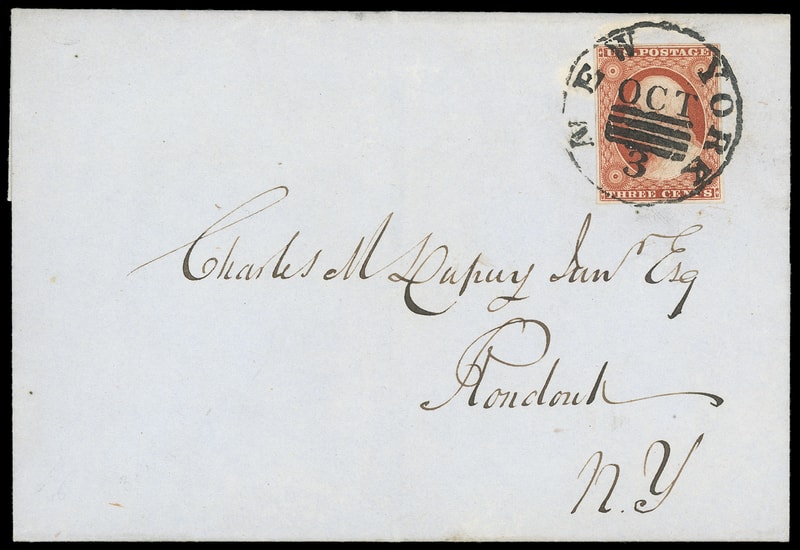 U.S. POSTAGE
NEW YORK
OCT
3
THREE CENTS
Charles M Dupuy Junr Esq
Rondout
N.Y